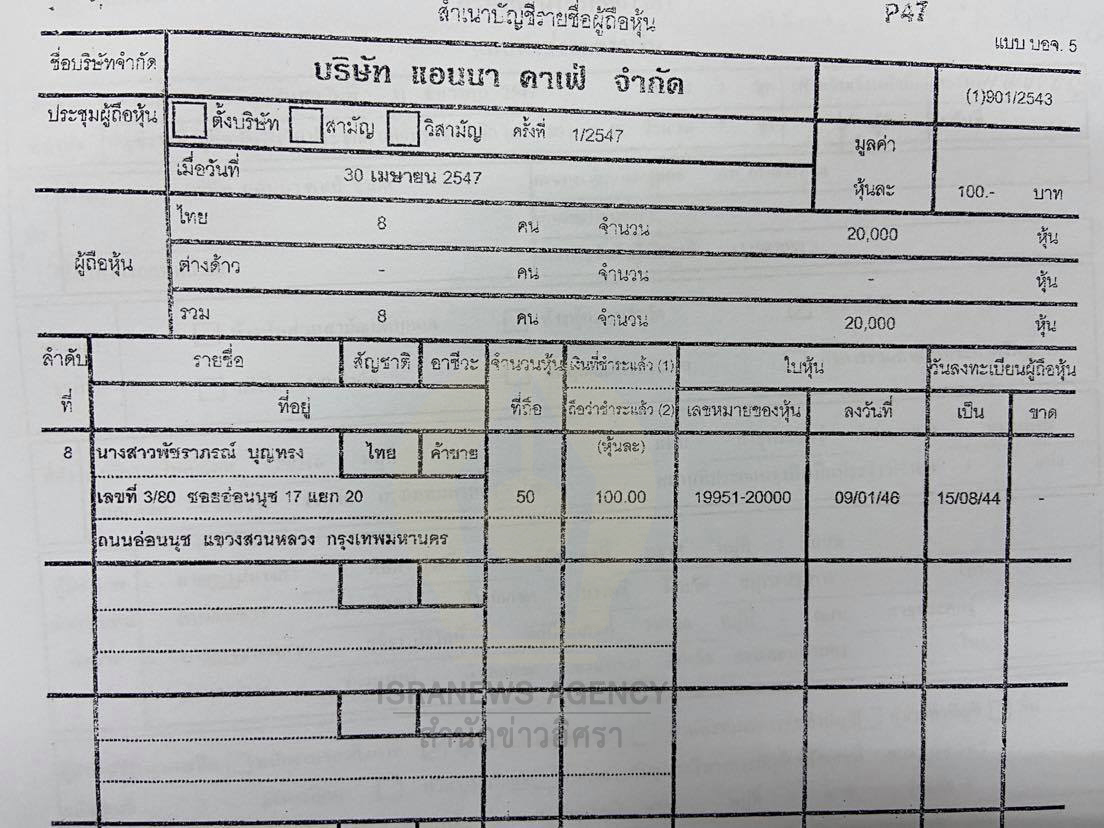 สำเนาบัญชีรายชื่อผู้ถือหุ้น
P47
แบบ บอจ. 5
ชื่อบริษัทจำกัด บริษัท แอนนา คาเฟ่ จำกัด (1)901/2543
ประชุมผู้ถือหุ้น ตั้งบริษัท สามัญ วิสามัญ ครั้งที่ 1/2547 มูลค่า
เมื่อวันที่ 30 เมษายน 2547 หุ้นละ 100.- บาท
ไทย 8 คน จำนวน 20,000 หุ้น
ผู้ถือหุ้น ต่างด้าว - คน จำนวน - หุ้น
รวม 8 คน จำนวน 20,000 หุ้น
ลำดับ รายชื่อ สัญชาติ อาชีวะ จำนวนหุ้น เงินที่ชำระแล้ว (1) ใบหุ้น วันลงทะเบียนผู้ถือหุ้น
ที่ ที่อยู่ ที่ถือ ถือว่าชำระแล้ว (2) เลขหมายของหุ้น ลงวันที่ เป็น ขาด
8 นางสาวพัชราภรณ์ บุญทรง ไทย ค้าขาย (หุ้นละ)
เลขที่ 3/80 ซอยอ่อนนุช 17 แยก 20 50 100.00 19951-20000 09/01/46 15/08/44 -
ถนนอ่อนนุช แขวงสวนหลวง กรุงเทพมหานคร
ISRANEWS AGENCY
สำนักข่าวอิศรา